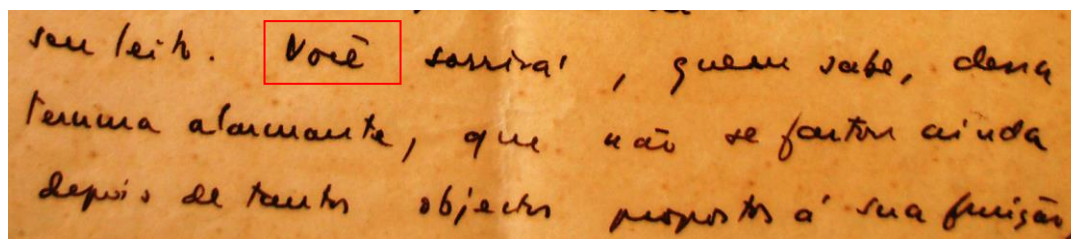 seu leito. Você sorrirá, quem sabe, dessa
ternura alarmante, que não se fartou ainda
depois de tantos objectos propostos á sua função